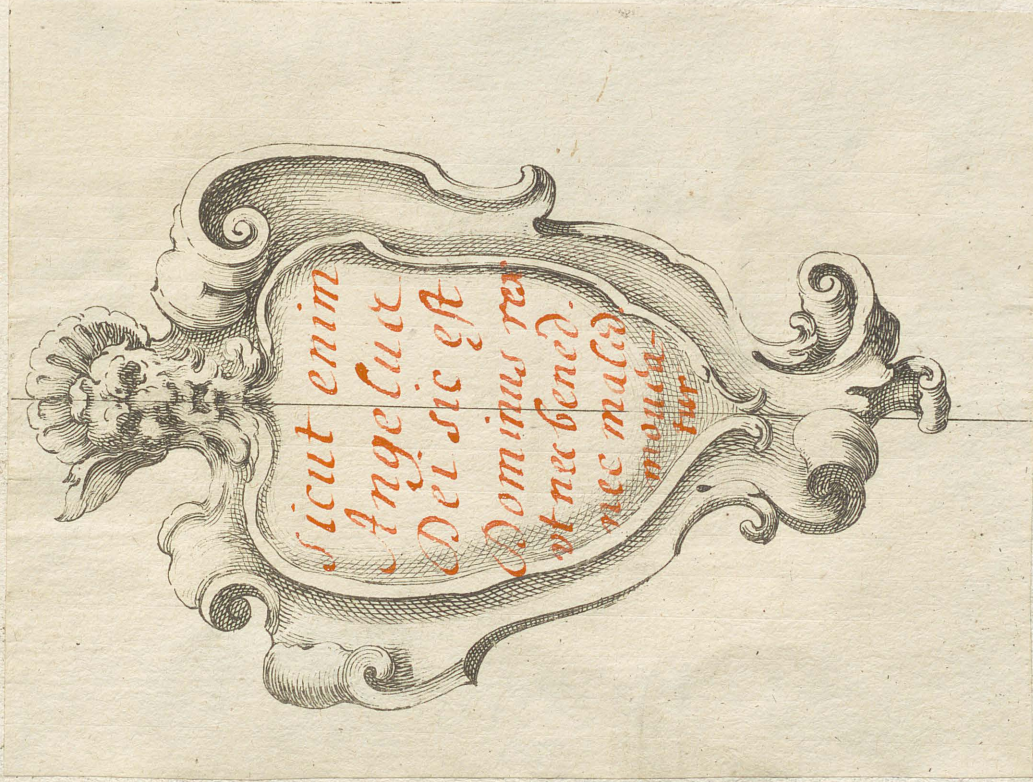 sicut enim
Angelus
Dei sic est
Dominus rex
vt nec bened.
nec maled.
mouea-
tur